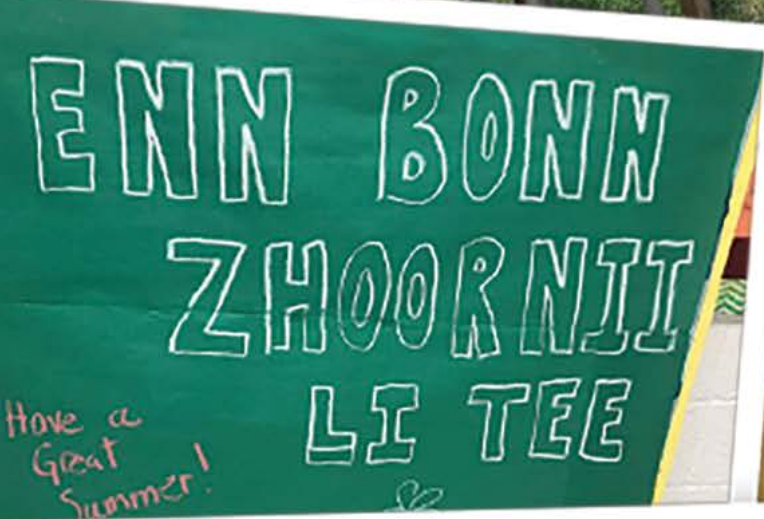 ENN BONN
ZHOORNII
LI TEE
Have a
Great
Summer!